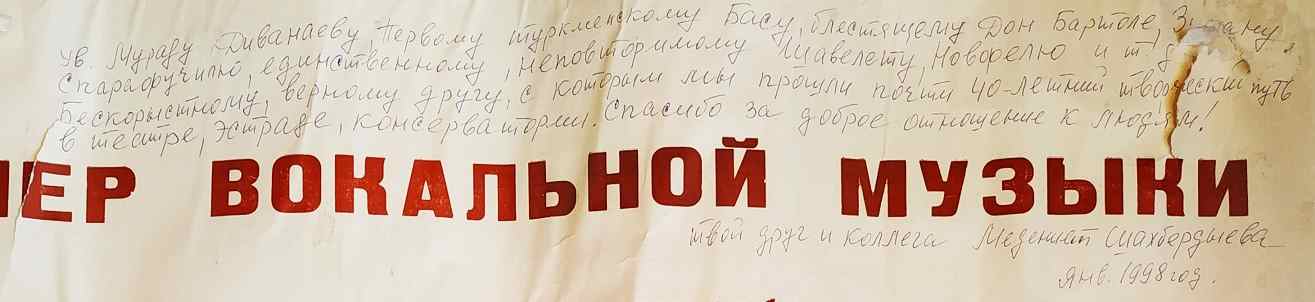 ув. Мураду Диванаеву Первому туркменскому Басу, блестящему Дон Бартоле,
Спарафучилю, единственному, неповторимому Шавелету, Новофелю и т. д.
Бескорыстному, верному другу, с которым мы прошли почти 40-летний творческий путь
в театре, эстраде, консерватории. Спасибо за доброе отношение к людям!
ЧЕР ВОКАЛЬНОЙ МУЗЫКИ
твой друг и коллега Меденият Шахбердыева
янв. 1998 год.